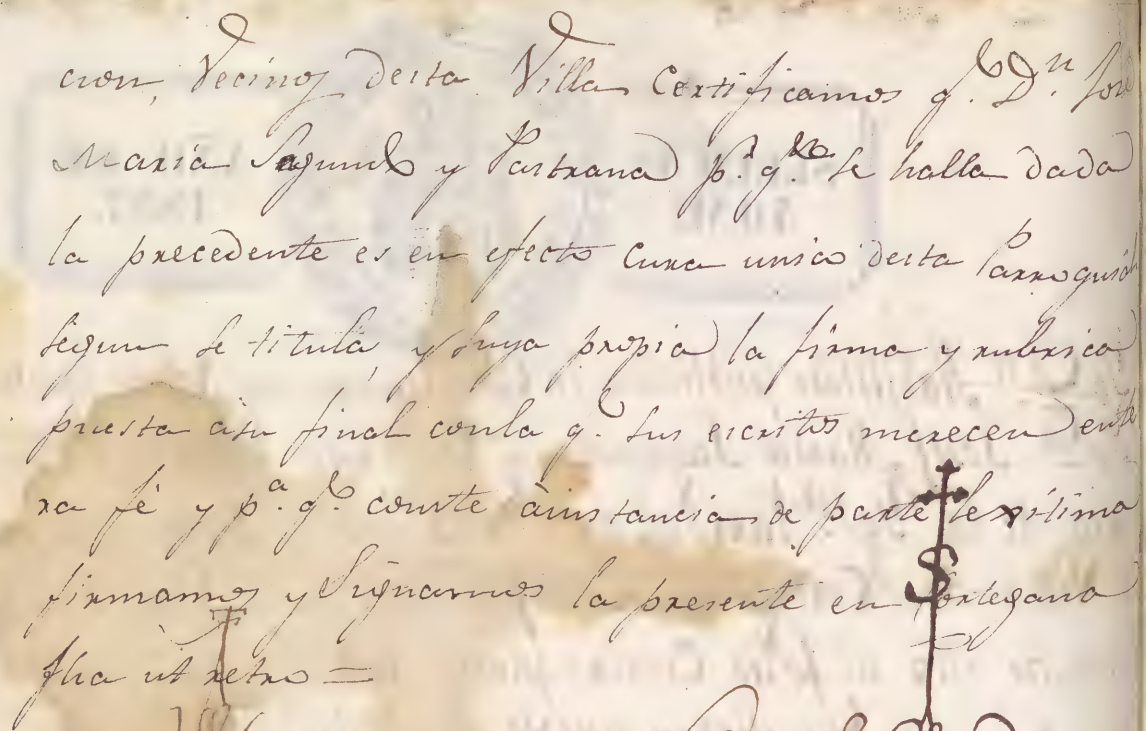 cion, Vecinos desta Villa Certificamos q.e D.n José
Maria Segundo y Pastrana p.r q.n se halla dada
la precedente es en efecto Cura unico desta Parroquial
segun se titula, y suya propia la firma y rubrica
puesta asu final conla q.e sus escritos merecen ente
ra fé y p.a q.e conste àinstancia de parte lexitima
firmamos y Signamos la presente en Cortegana
fha ùt retro =
S